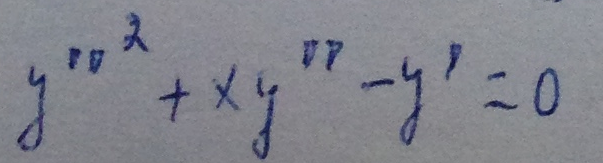 y''² + xy'' - y' = 0